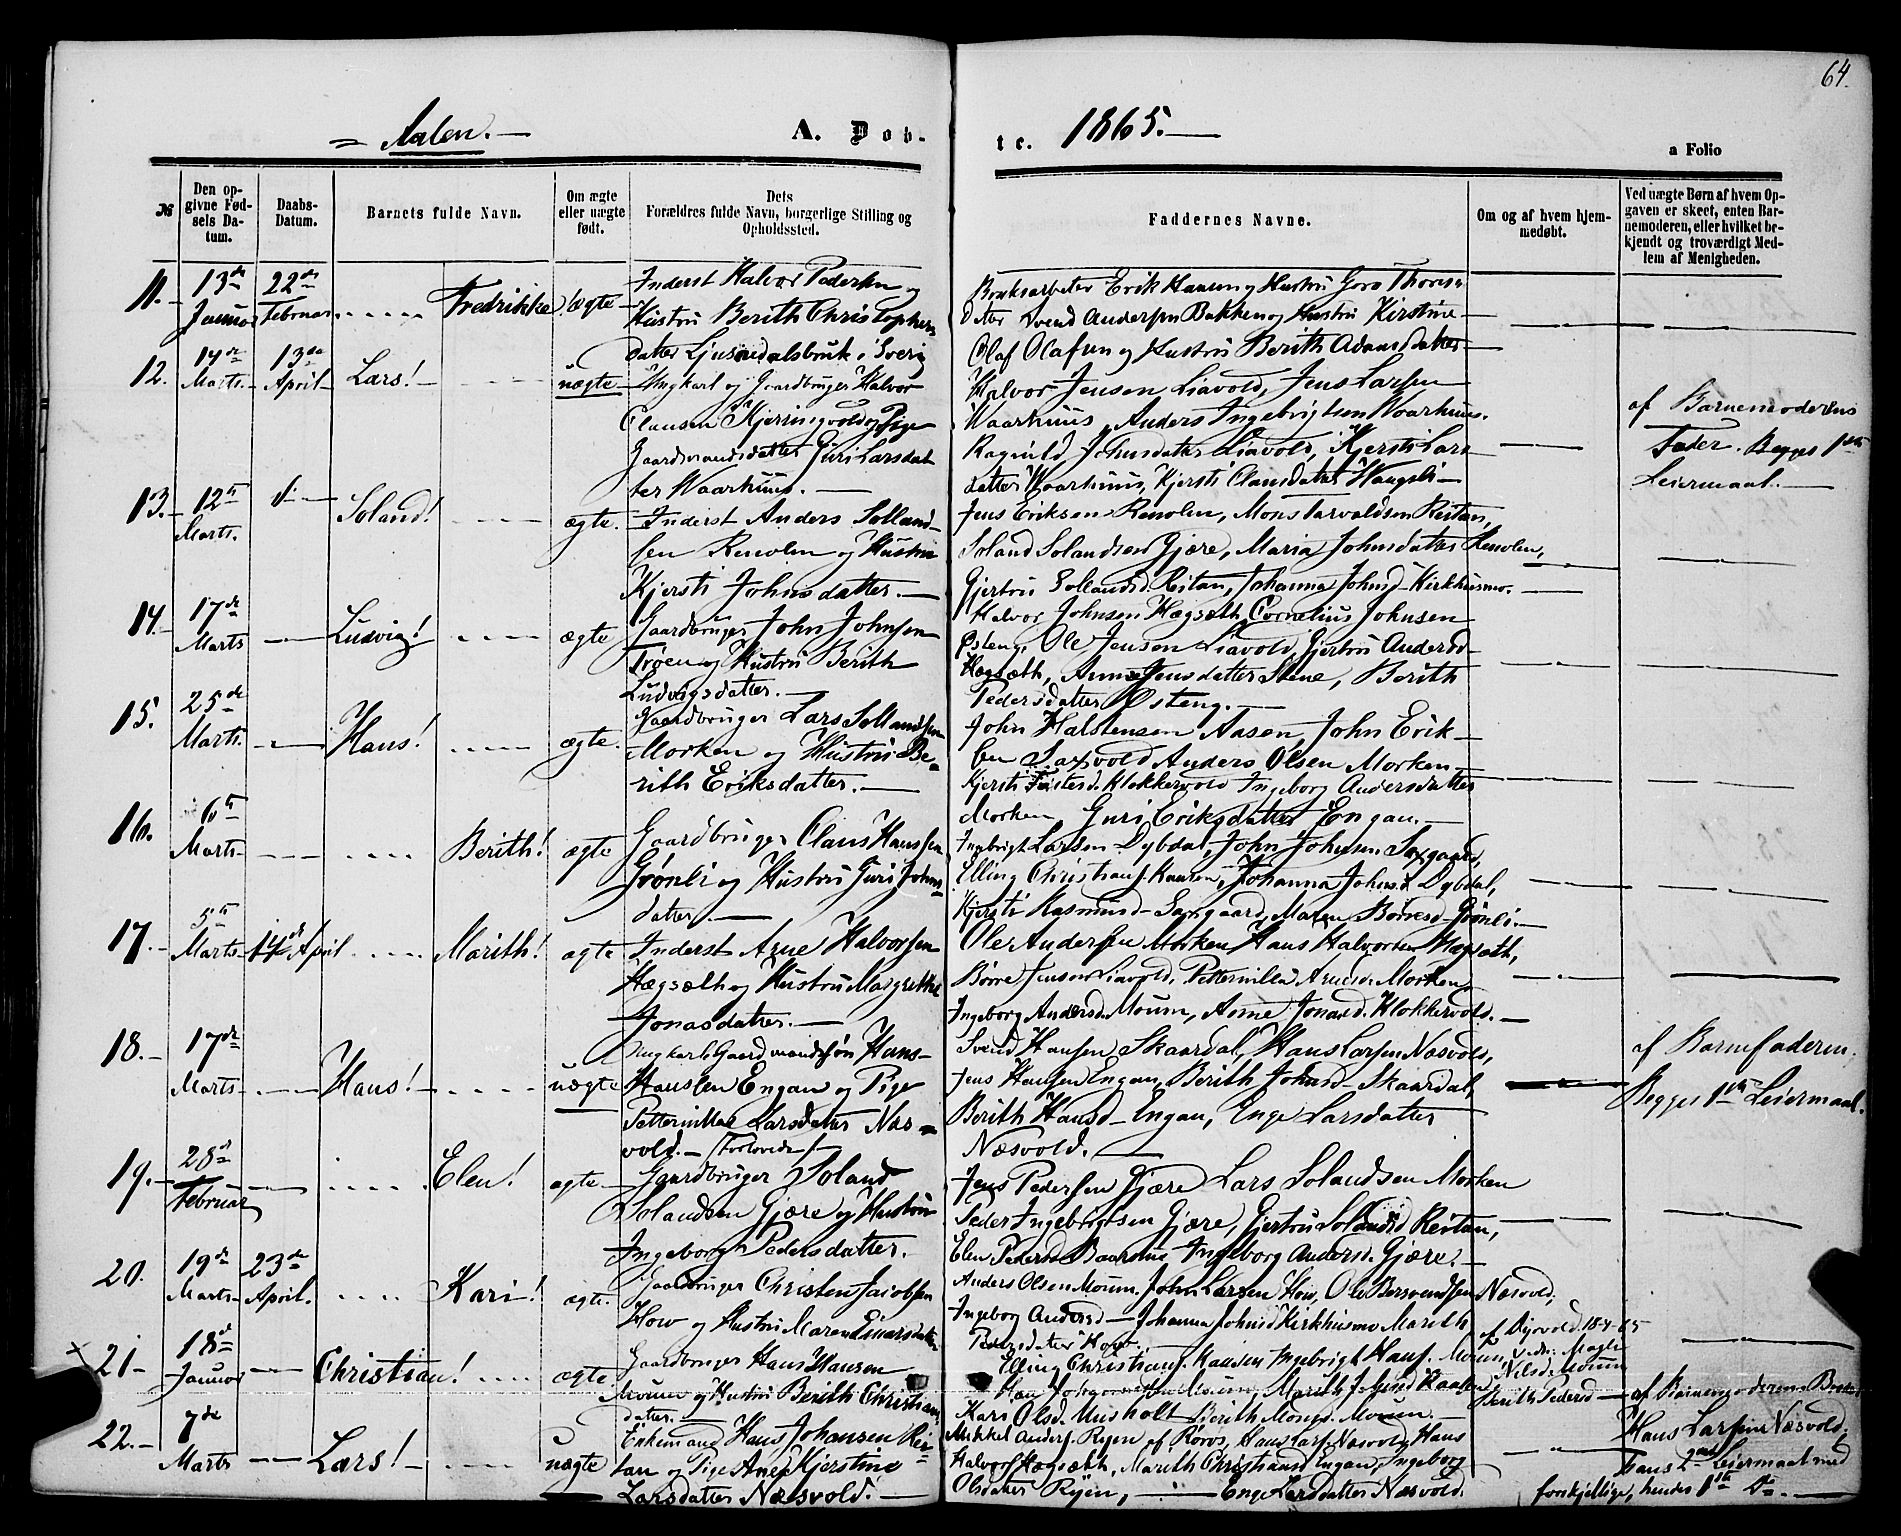 64.
Aalen.
A. Døb-
te. 1865.
a Folio
№
Den opgivne Fødsels Datum.
Daabs-Datum.
Barnets fulde Navn.
Om ægte eller uægte født.
Dets Forældres fulde Navn, borgerlige Stilling og Opholdssted.
Faddernes Navne.
Om og af hvem hjemmedøbt.
Ved uægte Børn af hvem Opgaven er skeet, enten Barnemoderen, eller hvilket bekjendt og troværdigt Medlem af Menigheden.
11. 13de Januar 22de Februar Fredrikke! ægte
Inderst Halvor Pedersen og
Hustru Berith Christophers
datter Ljusnedalsbruk i Sverig
Bruksarbeider Erik Hansen og Hustru Goro Thores
datter Svend Andersen Bakken og Hustru Kirstine
Olaf Olafsen og Hustru Berith Adamsdatter
12. 14de Marts 13de April Lars! uægte
Ungkarl og Gaardbruger Halvor
Clausen Kjerringvold og Pige
Gaardmandsdatter Guri Larsdat
ter Waarhuus.
Halvor Jensen Liavold, Jens Larsen
Waarhuus, Anders Ingebrigtsen Waarhuus.
Ragnild Johnsdatter Liavold, Kjersti Lars
datter Waarhuus, Kjersti Clausdatter Haugsli
af Barnemoderens
Fader. Begges 1ste
Leiermaal.
13. 12te Marts. Soland! ægte.
Inderst Anders Solland
sen Renolen og Hustru
Kjersti Johnsdatter.
Jens Eriksen Renolen, Mons Tarvaldsen Reitan,
Soland Solandsen Gjære, Maria Johnsdatter Renolen,
Gjertru Sollandsd. Reitan, Johanna Johnsd. Kirkhusmo.
14. 17de Marts Ludvig! ægte
Gaardbruger John Johnsen
Trøen og Hustru Berith
Ludvigsdatter.
Halvor Johnsen Hægseth, Cornelius Johnsen
Østeng, Ole Jensen Liavold, Gjertru Andersd
Hægsæth, Anne Jensdatter Stene, Berith
Pedersdatter Østeng.
15. 25de Marts. Hans! ægte.
Gaardbruger Lars Sollandsen
Morken og Hustru Be-
rith Eriksdatter.
John Halstensen Aasen, John Erik-
sen Saxvold Anders Olsen Morken
Kjersti Klokkervold Ingeborg Andersdatter
Morken, Guri Eriksdatter Engan.
16. 6te Marts Berith! ægte
Gaardbruger Claus Hansen
Grønli og Hustru Guri Johns-
datter.
Ingebrigt Larsen Dybdal, John Johnsen Saxgaard,
Elling Christians. Kaasen, Johanna Johnsd. Dybdal,
Kjersti Rasmusd. Saxgaard, Maren Børresd. Grønli.
17. 5te Marts 14de April Marith! ægte
Inderst Arne Halvorsen
Hægsæth og Hustru Margrethe
Jonasdatter.
Ole Andersen Morken Hans Halvorsen Hægsæth,
Børre Jensen Liavold, Petternilla Arnesd. Morken
Ingeborg Andersd. Moum, Anne Jonasd. Klokkervold.
18. 17de Marts Hans! uægte
Ungkarl Gaardmandssøn Hans
Hansen Engan og Pige
Petternilla Larsdatter Næs-
vold. (Forlovede)
Svend Hansen Skaardal, Hans Larsen Næsvold,
Jens Hansen Engan, Berith Johnsd. Skaardal
Berith Hansd. Engan, Enge Larsdatter
Næsvold.
af Barnefaderen.
Begges 1ste Leiermaal.
19. 28de Februar Elen! ægte
Gaardbruger Soland
Solandsen Gjære og Hustru
Ingeborg Pedersdatter.
Jens Pedersen Gjære Lars Solandsen Morken
Peder Ingebrigtsen Gjære, Gjertru Solandsd. Reitan,
Elen Pedersd Ingeborg Andersd. Gjære.
20. 19de Marts 23de April. Kari! ægte.
Gaardbruger Christen Jacobsen
How og Hustru Maren Einarsdatter
Anders Olsen Moum, John Larsen How, Ole Bersvendsen Næsvold,
Ingeborg Andersd Johanna Johnsd Kirkhusmo Marith
Pedersdatter How.
21 18de Januar Christian! ægte
Gaardbruger Hans Hansen
Moum og Hustru Berith Christians
datter.
Elling Christians. Kaasen Ingebrigt Hans. Moum,
Moum, Marith Johnsd Kaasen Berith Pedersd
Kari Olsd. Musholt Berith Monsd. Moum.
22. 7de Marts Lars! uægte
Enkemand Hans Johansen Rei-
tan og Pige Ane Kjerstine
Larsdatter Næsvold.
Mikkel Anders. Ryen af Røros, Hans Lars. Næsvold, Hans
Halvors Hægsæth, Marith Christiansd Engan, Ingeborg
Olsdatter Ryen, Enge Larsdatter Næsvold.
af Barnemoderens Broder
Hans Larsen Næsvold.
Hans 2det Leiermaal med
forskjellige, hendes 1ste Do.